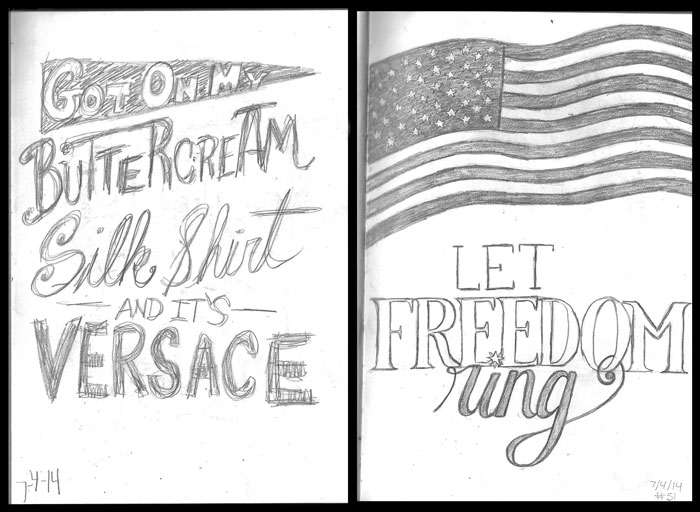 GOT ON MY
BUTTERCREAM
Silk Shirt
AND IT'S
VERSACE
7-4-14
LET
FREEDOM
ring
7/4/14
#51